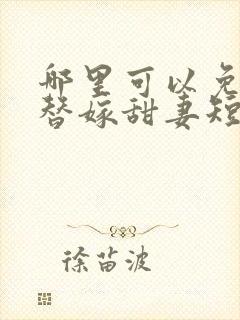 哪里可以免
替嫁甜妻短
徐苗波